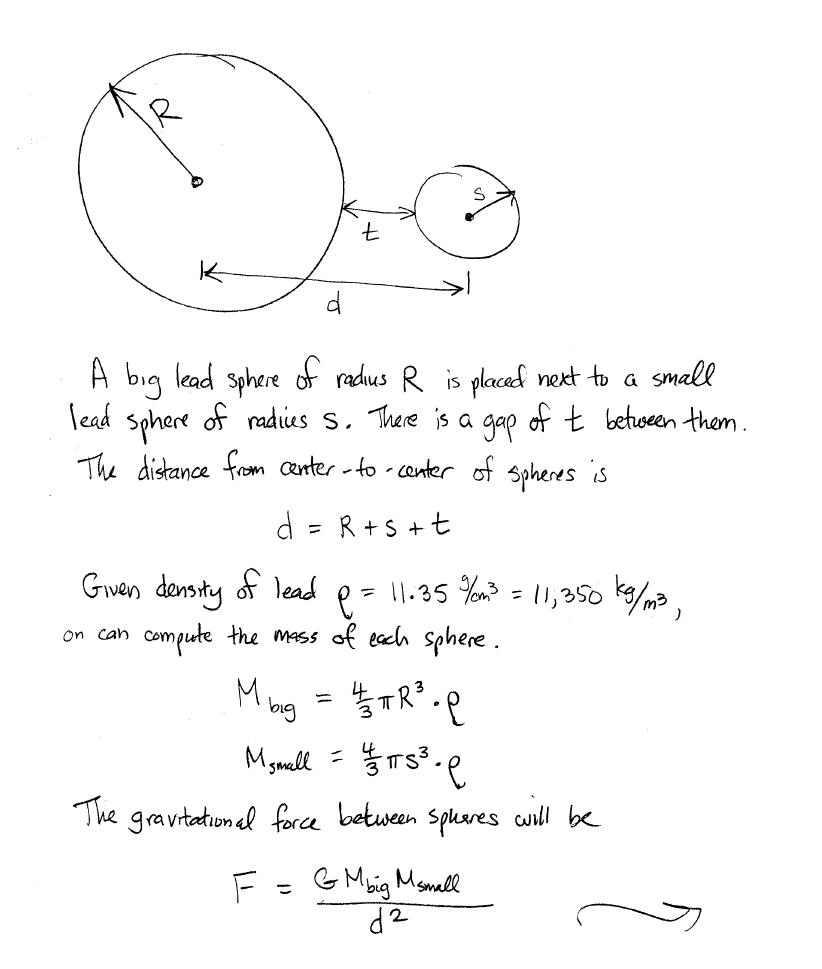 R
s
t
d
A big lead sphere of radius R is placed next to a small
lead sphere of radius s. There is a gap of t between them.
The distance from center-to-center of spheres is
d = R + s + t
Given density of lead ρ = 11.35 g/cm³ = 11,350 kg/m³,
on can compute the mass of each sphere.
M big = 4/3 π R³ · ρ
M small = 4/3 π s³ · ρ
The gravitational force between spheres will be
F = G M big M small / d²